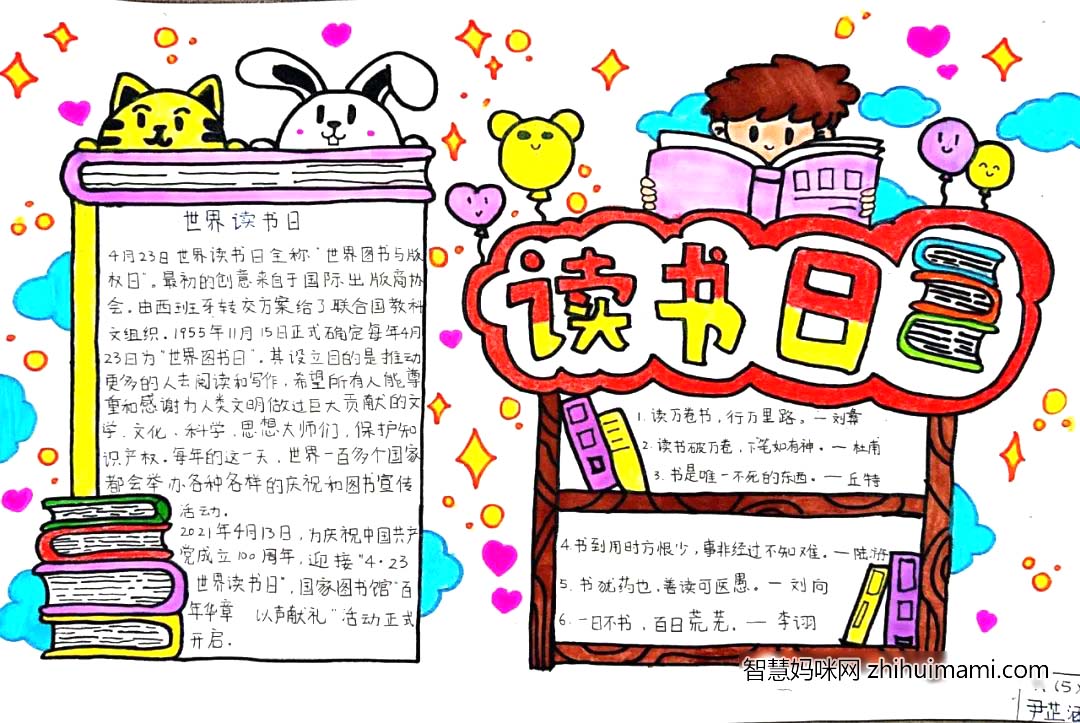 世界读书日
4月23日世界读书日全称“世界图书与版
权日”。最初的创意来自于国际出版商协
会。由西班牙转交方案给了联合国教科
文组织。1955年11月15日正式确定每年4月
23日为“世界图书日”。其设立目的是推动
更多的人去阅读和写作，希望所有人能尊
重和感谢为人类文明做过巨大贡献的文
学、文化、科学、思想大师们，保护知
识产权。每年的这一天，世界一百多个国家
都会举办各种各样的庆祝和图书宣传
活动。
2021年4月13日，为庆祝中国共产
党成立100周年，迎接“4·23
世界读书日”，国家图书馆“百
年华章 以声献礼”活动正式
开启。
读书日
1.读万卷书，行万里路。—刘彝
2.读书破万卷，下笔如有神。—杜甫
3.书是唯一不死的东西。—丘特
4.书到用时方恨少，事非经过不知难。—陆游
5.书犹药也，善读可医愚。—刘向
6.一日不书，百日荒芜。—李诩
智慧妈咪网 zhihuimami.com
(5)